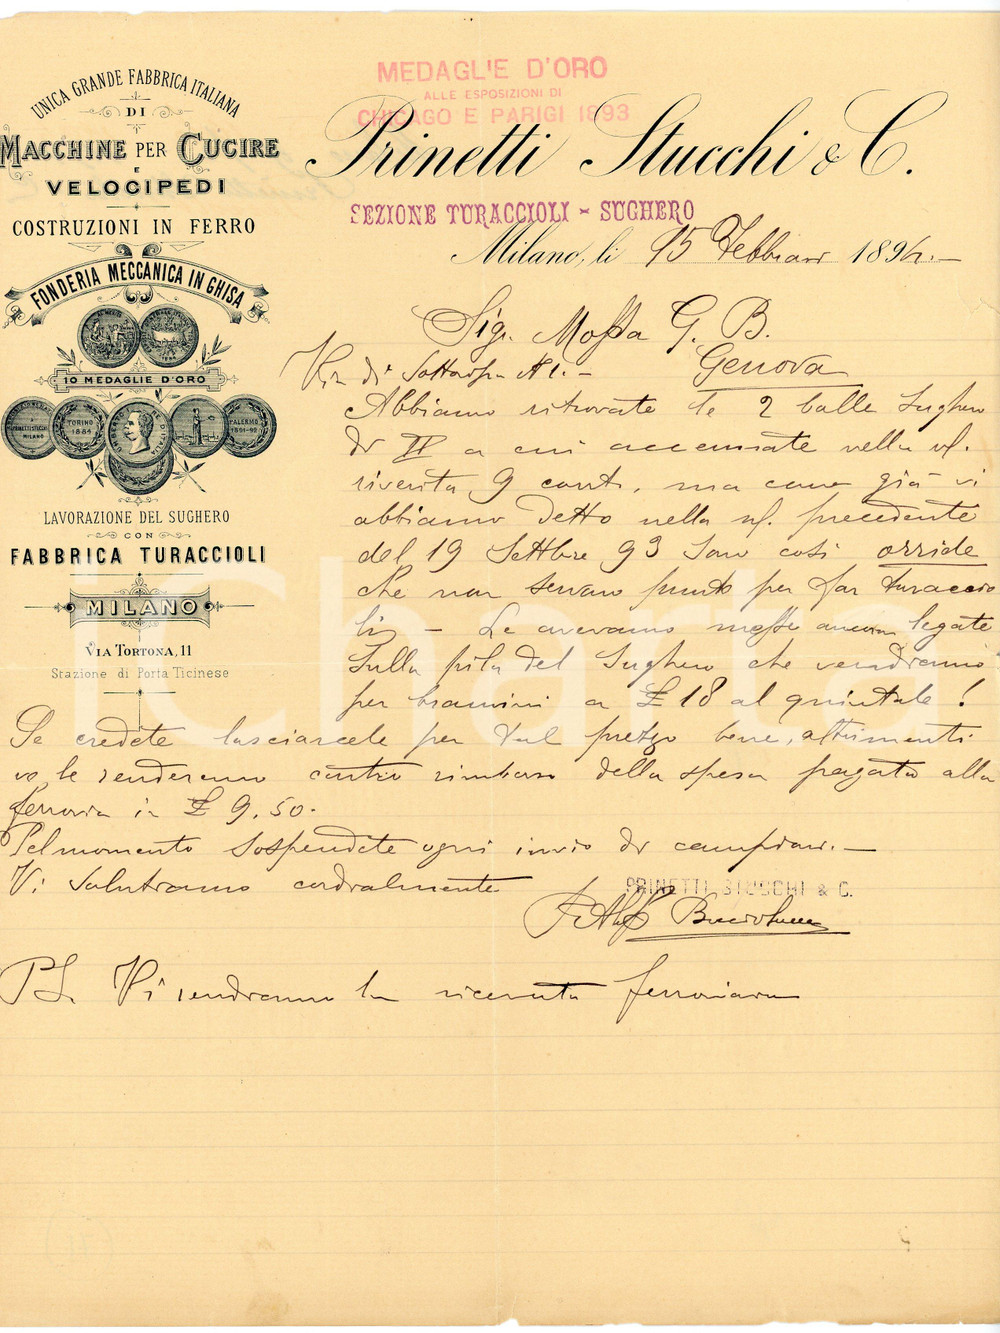 UNICA GRANDE FABBRICA ITALIANA
DI
MACCHINE PER CUCIRE
E
VELOCIPEDI
COSTRUZIONI IN FERRO
FONDERIA MECCANICA IN GHISA
10 MEDAGLIE D'ORO
TORINO
1884
PALERMO
1891-92
LAVORAZIONE DEL SUGHERO
CON
FABBRICA TURACCIOLI
MILANO
VIA TORTONA, 11
Stazione di Porta Ticinese
MEDAGLIE D'ORO
ALLE ESPOSIZIONI DI
CHICAGO E PARIGI 1893
Prinetti Stucchi & C.
SEZIONE TURACCIOLI - SUGHERO
Milano, li 15 Febbraio 1894.-
Sig. Mossa G. B.
Via di
Genova
Abbiamo ritrovate le 2 balle sughero
di II a cui accennate nella
riverita 9 corrt., ma come già vi
abbiamo detto nella precedente
del 19 Settbre 93 sono così orride
che non servano punto per far turaccio
li - Le avevamo messe ancora legate
sulla pila del sughero che vendiamo
per a £ 18 al quintale!
Se credete lasciarcele per tal prezzo bene, altrimenti
ve le renderemo contro rimborso della spesa pagata alla
ferrovia in £ 9,50.
Pel momento sospendete ogni invio di campioni.-
Vi salutiamo cordialmente
PRINETTI STUCCHI & C.
PS. Vi rendiamo la ricevuta ferroviaria
iCharta